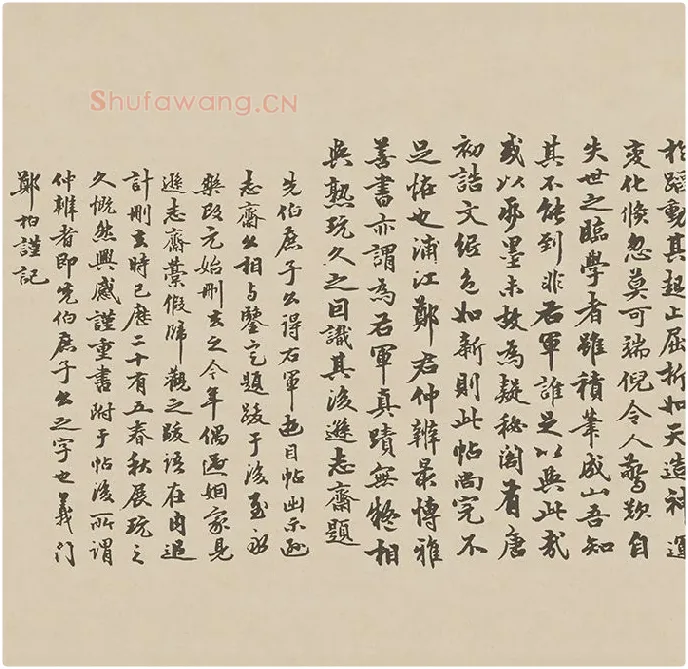 Shufawang.CN
於蹈動其起止屈折如天造神運
變化倏忽莫可端倪令人驚歎自
失世之臨學者雖積筆成山吾知
其不能到非右軍誰足以與此哉
或以帋墨未故為疑秘閣有唐
初誥文紙色如新則此帖尚完不
足怪也浦江鄭君仲辨最博雅
善書亦謂為右軍真蹟無疑相
與熟玩久之因識其後遜志齋題
先伯庶子公得右軍遊目帖出示遜
志齋公相與鑒定題跋于後至永
樂改元始刪去之今年偶過姻家見
遜志齋藁假歸觀之跋語在內追
計刪去時已歷二十有五春秋展玩之
久慨然興感謹重書附于帖後所謂
仲辨者即先伯庶子公之字也義門
鄭柏謹記